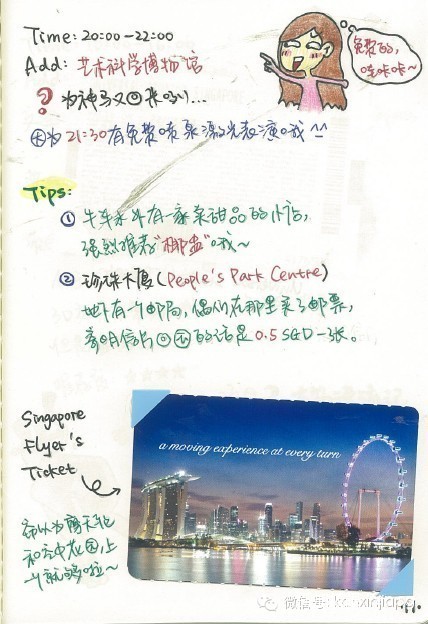 Time: 20:00-22:00
Add: 艺术科学博物馆
免费的,
哇咔咔~
? 为神马又回来咧...
因为21:30有免费喷泉激光表演哦^^
Tips:
① 牛车水有一家卖甜品的小店,
强烈推荐"椰盅"哦~
② 珍珠大厦(People's Park Centre)
地下有一个邮局, 偶们在那里买了邮票,
寄明信片回国的话是0.5SGD一张。
Singapore
Flyer's
Ticket
a moving experience at every turn
和空中花园上
一个就够啦~
微信号: kanxinjiapo